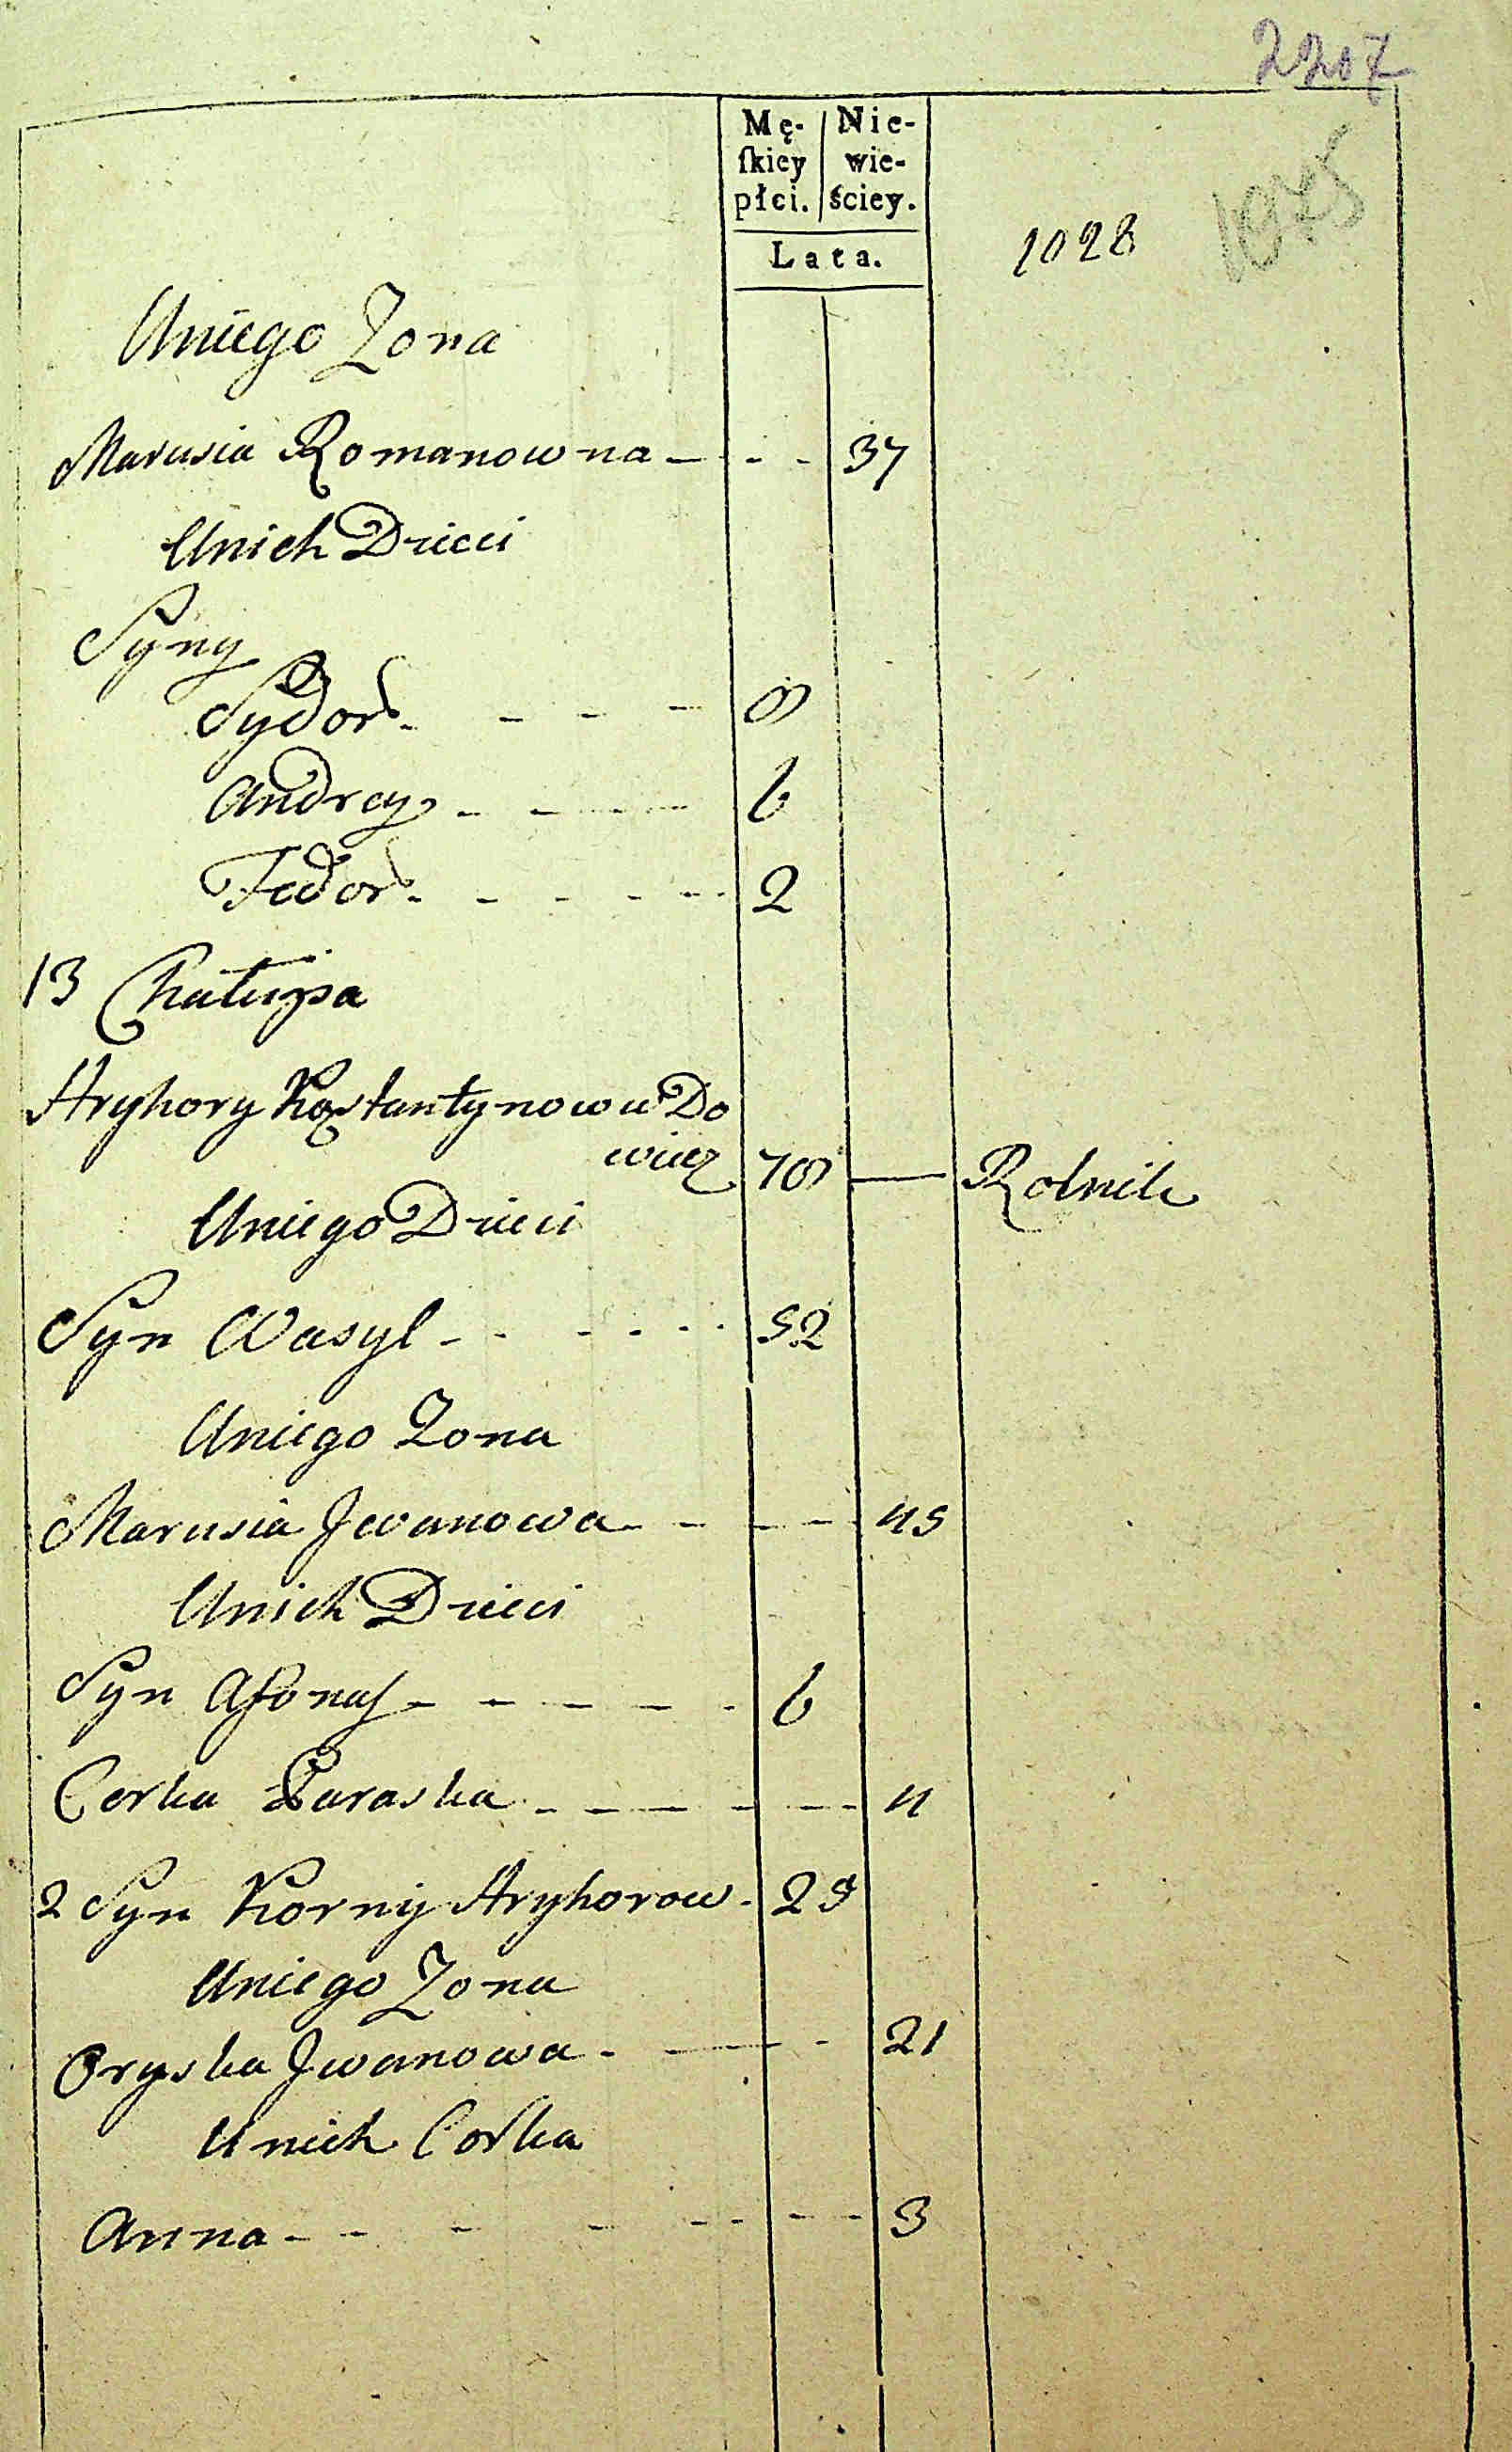 2207
Mę-
ſkiey
płci.
Nie-
wie-
ściey.
Lata.
1028
Uniego Zona
Marusia Romanowna - - - 37
Unich Dzieci
Syny
Sydor - - - - 8
Andrey - - - - 6
Fedor - - - - - 2
13 Chałupa
Hryhory Kostantynow wDo
wiec 78 — Rolnik
Uniego Dzieci
Syn Wasyl - - - - - - 52
Uniego Zona
Marusia Jwanowa - - - - - 45
Unich Dzieci
Syn Afonas - - - - - 6
Corka Paraska - - - - - - 4
2 Syn Korniy Hryhorow - 29
Uniego Zona
Oryska Jwanowa - - - 21
Unich Corka
Anna - - - - - - - - 3